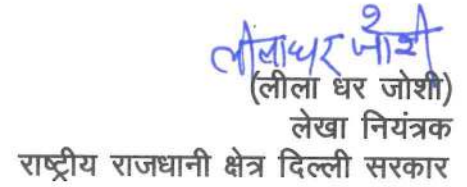 लीलाधर जोशी
(लीला धर जोशी)
लेखा नियंत्रक
राष्ट्रीय राजधानी क्षेत्र दिल्ली सरकार